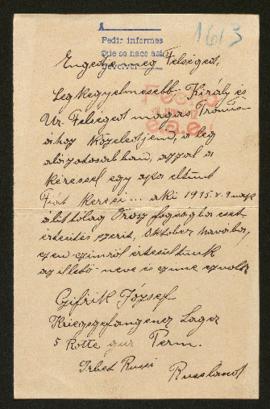 Pedir informes
que se nace
1613
Engedje meg Felséged,
Legkegyelmesebb Király és
Úr Felséged magas Trónus
ához közeledjem, a leg
alázatosabban, azzal a
kéréssel egy apa eltünt
fiat keresi... aki 1915. v. 9 napj
állitólag Orosz fogságba esett
értesités szerit, Október havába,
ezen cimről értesültünk
az illető neve és cime ez volt
Gyifrik József
Kriegsgefangenen Lager
5 Rotte gur Perm.
Irbet Russi
Russland